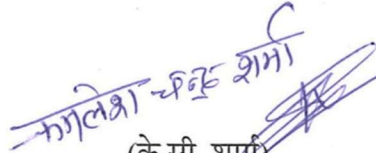 कमलेश चन्द्र शर्मा
(के.सी. शर्मा)